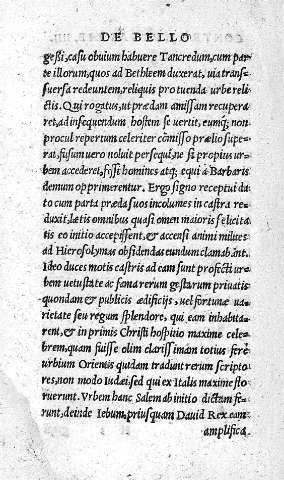 DE BELLO
gesti, casu obuium habuere Tancredum, cum par-
te illorum, quos ad Bethleem duxerat, uia trans-
suersa redeuntem, reliquis pro tuenda urbe reli-
ctis. Qui rogatus, ut prædam amissam recupera
ret, ad insequendum hostem se uertit, eumq; non
procul repertum celeriter cõmisso prælio supe-
rat, fusum uero noluit persequi, ne si propius ur-
bem accederet, fessi homines atq; equi à Barbaris
demum opprimerentur. Ergo signo receptui da-
to cum parta præda suos incolumes in castra re-
duxit, lætis omnibus quasi omen maioris felicita
tis eo initio accepissent, & accensi animi milites
ad Hierosolymas obsidendas eundum clamabant.
Ideo duces motis castris ad eam sunt profecti ur-
bem uetustate ac fama rerum gestarum priuatis
quondam & publicis ædificijs, uel fortunæ ua-
rietate seu regum splendore, qui eam inhabita-
rent, & in primis Christi hospitio maxime cele-
brem, quam fuisse olim clarissimam totius ferè
urbium Orientis quidam tradunt rerum scripto
res, non modo Iudæi, sed qui ex Italis maxime flo
ruerunt. Vrbem hanc Salem ab initio dictam fe-
runt, deinde Iebum, priusquam Dauid Rex eam
amplifica